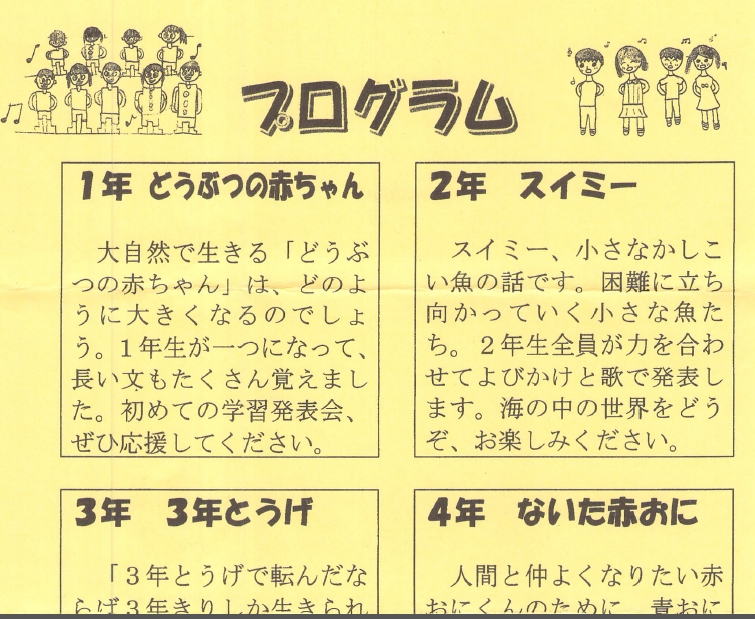 プログラム
1年 どうぶつの赤ちゃん
大自然で生きる「どうぶ
つの赤ちゃん」は、どのよ
うに大きくなるのでしょ
う。1年生が一つになって、
長い文もたくさん覚えまし
た。初めての学習発表会、
ぜひ応援してください。
2年 スイミー
スイミー、小さなかしこ
い魚の話です。困難に立ち
向かっていく小さな魚た
ち。2年生全員が力を合わ
せてよびかけと歌で発表し
ます。海の中の世界をどう
ぞ、お楽しみください。
3年 3年とうげ
「3年とうげで転んだな
らば3年きりしか生きられ
4年 ないた赤おに
人間と仲よくなりたい赤
おにくんのために、青おに